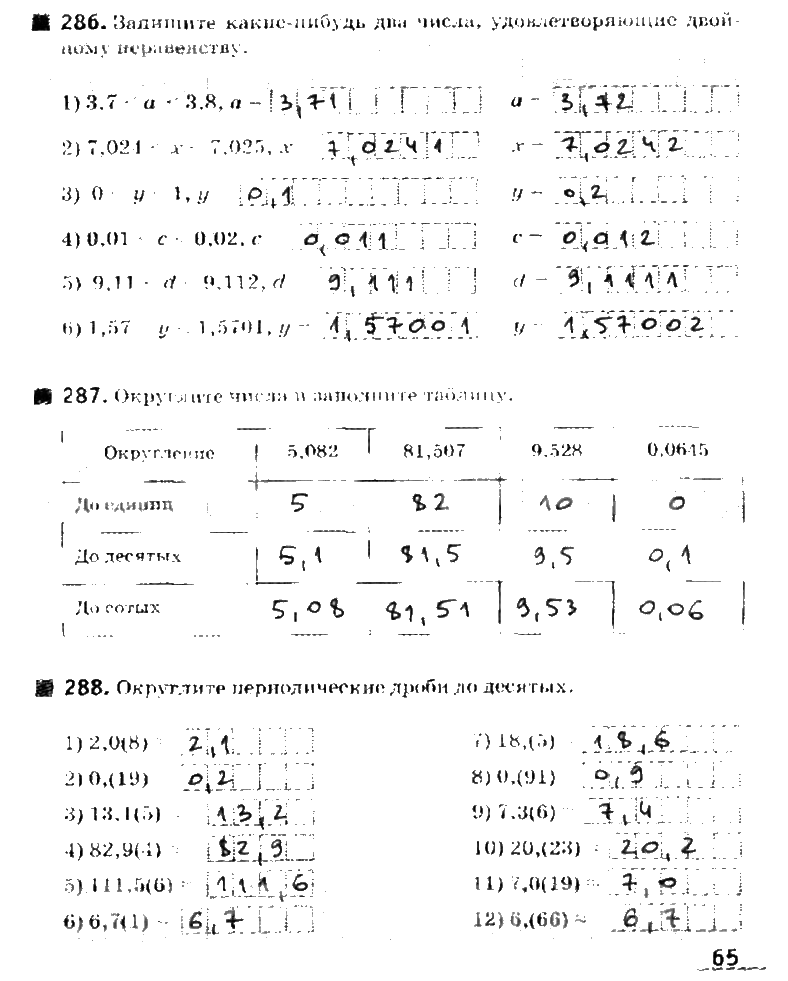 286. Запишите какие-нибудь два числа, удовлетворяющие двой-
ному неравенству.
1) 3,7 < a < 3,8, a = 3,71 a = 3,72
2) 7,024 < x < 7,025, x 7,0241 x = 7,0242
3) 0 < y < 1, y 0,1 y = 0,2
4) 0,01 < c < 0,02, c 0,011 c = 0,012
5) 9,11 < d < 9,112, d 9,111 d = 9,1111
6) 1,57 y < 1,5701, y = 1,57001 y = 1,57002
287. Округлите числа и заполните таблицу.
Округление 5,082 81,507 9,528 0,0645
До единиц 5 82 10 0
До десятых 5,1 81,5 9,5 0,1
До сотых 5,08 81,51 9,53 0,06
288. Округлите периодические дроби до десятых.
1) 2,0(8) ≈ 2,1 7) 18,(5) ≈ 18,6
2) 0,(19) 0,2 8) 0,(91) 0,9
3) 13,1(5) ≈ 13,2 9) 7,3(6) ≈ 7,4
4) 82,9(4) ≈ 82,9 10) 20,(23) ≈ 20,2
5) 111,5(6) ≈ 111,6 11) 7,0(19) ≈ 7,0
6) 6,7(1) ≈ 6,7 12) 6,(66) ≈ 6,7
65